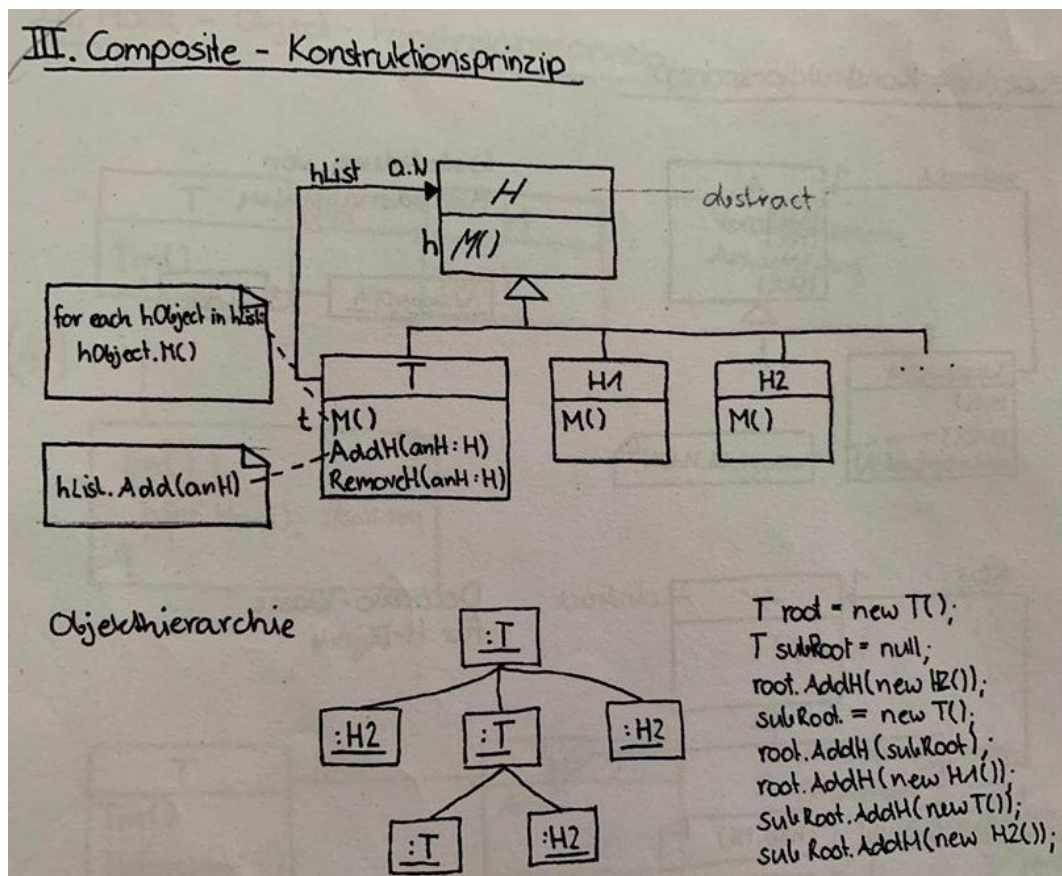 III. Composite - Konstruktionsprinzip
hList 0..N
H
abstract
h M()
for each hObject in hList:
hObject.M()
T
H1
H2
...
t M()
AddH(anH:H)
RemoveH(anH:H)
M()
M()
hList.Add(anH)
Objekthierarchie
:T
:H2
:T
:H2
:T
:H2
T root = new T();
T subRoot = null;
root.AddH(new H2());
subRoot = new T();
root.AddH(subRoot);
root.AddH(new H1());
subRoot.AddH(new T());
subRoot.AddH(new H2());